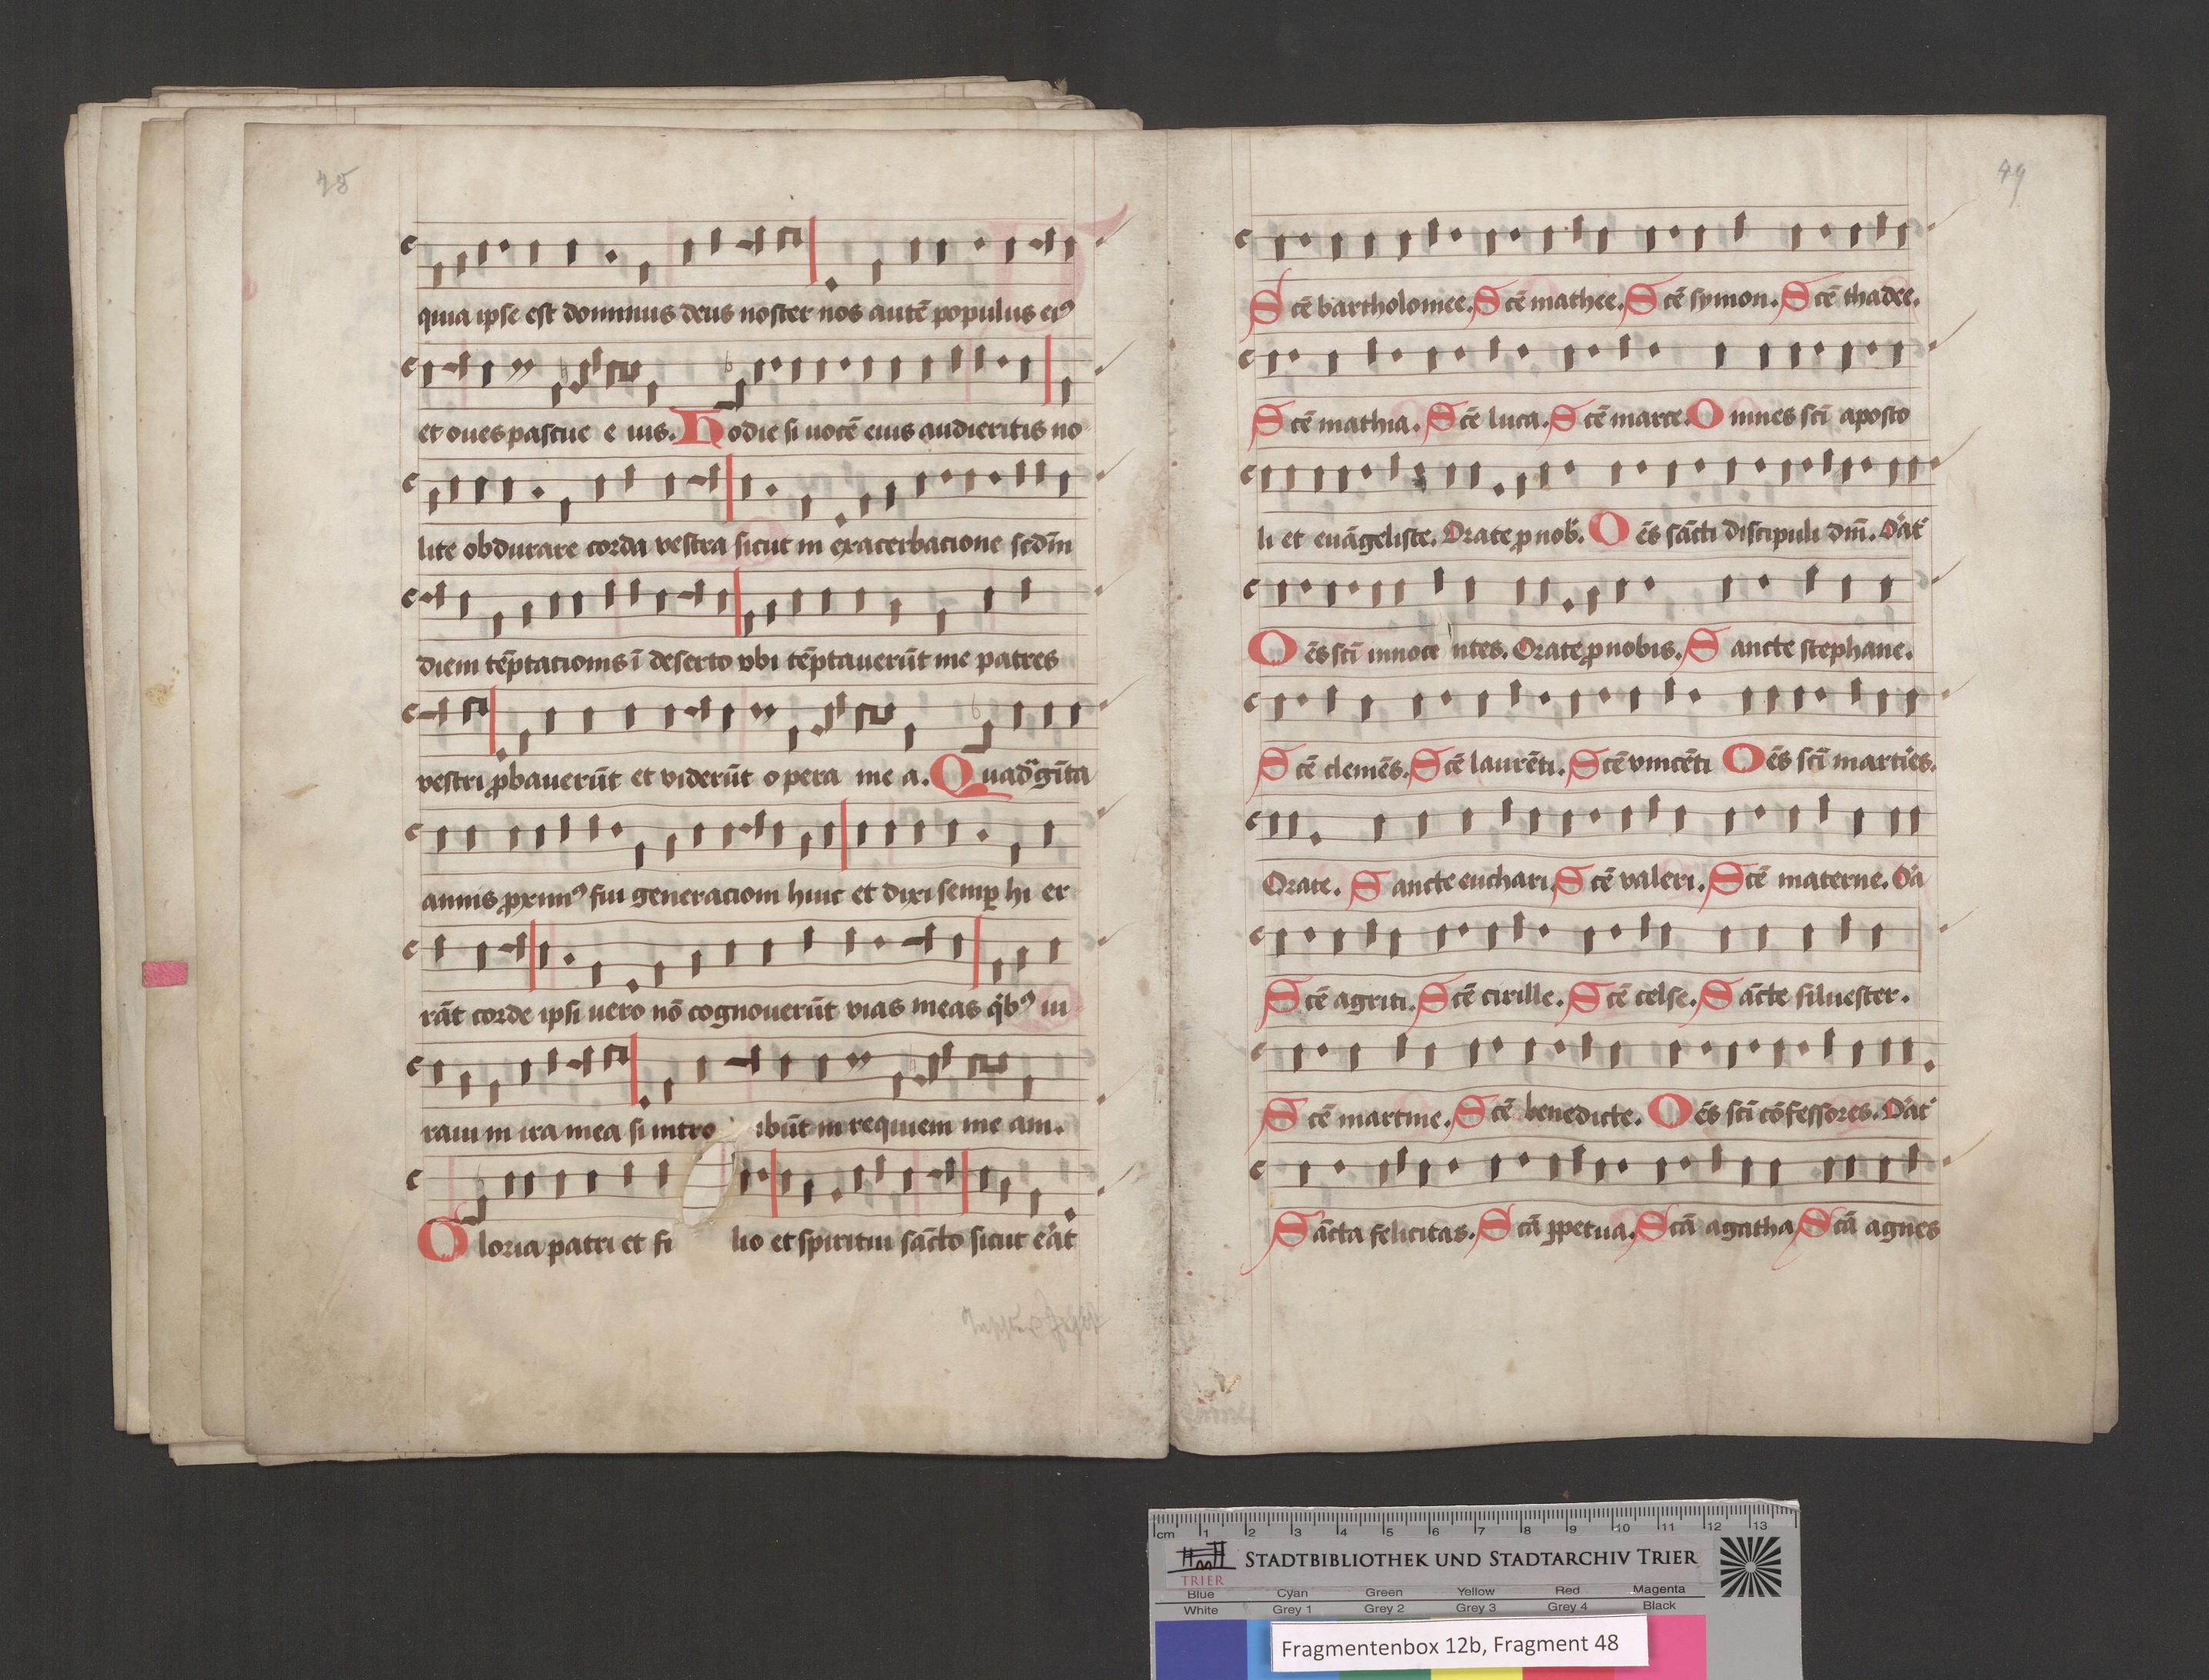 quia ipse est dominus deus noster nos autē populus eiꝰ
et oues pascue e ius. Hodie si uocē eius audieritis no
lite obdurare corda vestra sicut in exacerbacione scdm̄
diem tēptacionis ī deserto vbi tēptauerūt me patres
vestri ꝓbauerūt et viderūt opera me a. Quadͣgīta
annis ꝓximꝰ fui generacioni huic et dixi semꝑ hi er
rāt corde ipsi vero nō cognouerūt vias meas qͥbꝰ iu
raui in ira mea si intro ibūt in requiem me am.
Gloria patri et fi lio et spiritui sācto sicut erat
49
Scē bartholomee. Scē mathee. Scē symon. Scē thadee.
Scē mathia. Scē luca. Scē marce. Omnes sci aposto
li et euāgeliste. Orate ꝓ nob. Oēs sācti discipuli dm̄. Orat
Oēs sci innoce ntes. Orate ꝓ nobis. Sancte stephane.
Scē clemēs. Scē laurēti. Scē vincēti Oēs sci martires.
Orate. Sancte euchari. Scē valeri. Scē materne. Ora
Scē agriti. Scē cirille. Scē celse. Sācte siluester.
Scē martine. Scē benedicte. Oēs sci cōfessores. Orat
Sācta felicitas. Scā ꝑpetua. Scā agatha Scā agnes
cm 1 2 3 4 5 6 7 8 9 10 11 12 13
STADTBIBLIOTHEK UND STADTARCHIV TRIER
TRIER
Blue Cyan Green Yellow Red Magenta
White Grey 1 Grey 2 Grey 3 Grey 4 Black
Fragmentenbox 12b, Fragment 48